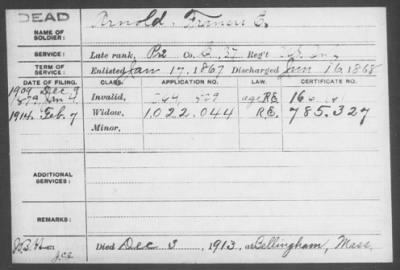 DEAD
NAME OF SOLDIER: Arnold, Francis E.
SERVICE: Late rank, Pvt Co. 37 Reg't
TERM OF SERVICE: Enlisted Jan 17, 1867 Discharged Jan 16, 1868
DATE OF FILING. CLASS. APPLICATION NO. LAW. CERTIFICATE NO.
1909 Dec 9 Invalid,
1914 Feb. 7 Widow, 1.022.044 785.327
Minor,
ADDITIONAL SERVICES:
REMARKS:
Died Dec 3, 1913, at Bellingham, Mass.